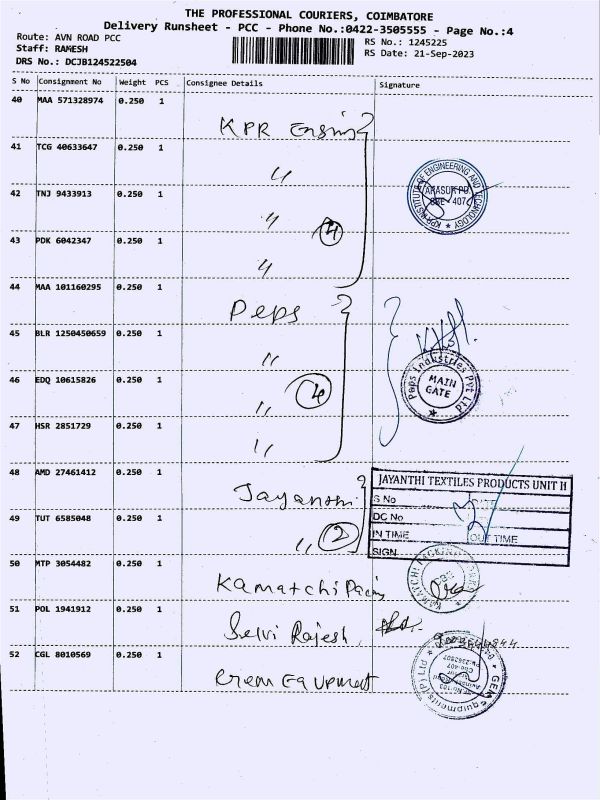 THE PROFESSIONAL COURIERS, COIMBATORE
Delivery Runsheet - PCC - Phone No.:0422-3505555 - Page No.:4
Route: AVN ROAD PCC RS No.: 1245225
Staff: RAMESH RS Date: 21-Sep-2023
DRS No.: DCJB124522504
S No Consignment No Weight PCS Consignee Details Signature
40 MAA 571328974 0.250 1
KPR
41 TCG 40633647 0.250 1
"
KPR INSTITUTE OF ENGINEERING AND TECHNOLOGY
ARASUR PO.
CBE - 407
42 TNJ 9433913 0.250 1
" 4
43 PDK 6042347 0.250 1
"
44 MAA 101160295 0.250 1
Peps
45 BLR 1250450659 0.250 1
"
Peps Industries Pvt Ltd
MAIN
GATE
46 EDQ 10615826 0.250 1
" 4
47 HSR 2851729 0.250 1
"
48 AMD 27461412 0.250 1
Jayanthi
JAYANTHI TEXTILES PRODUCTS UNIT II
S No DATE
DC No
IN TIME OUT TIME
SIGN
49 TUT 6585048 0.250 1
" 2
50 MTP 3054482 0.250 1
Kamatchi
KAMATCHI PACKING
51 POL 1941912 0.250 1
Selvi Rajesh
52 CGL 8010569 0.250 1
GEM Equipments (P) Ltd